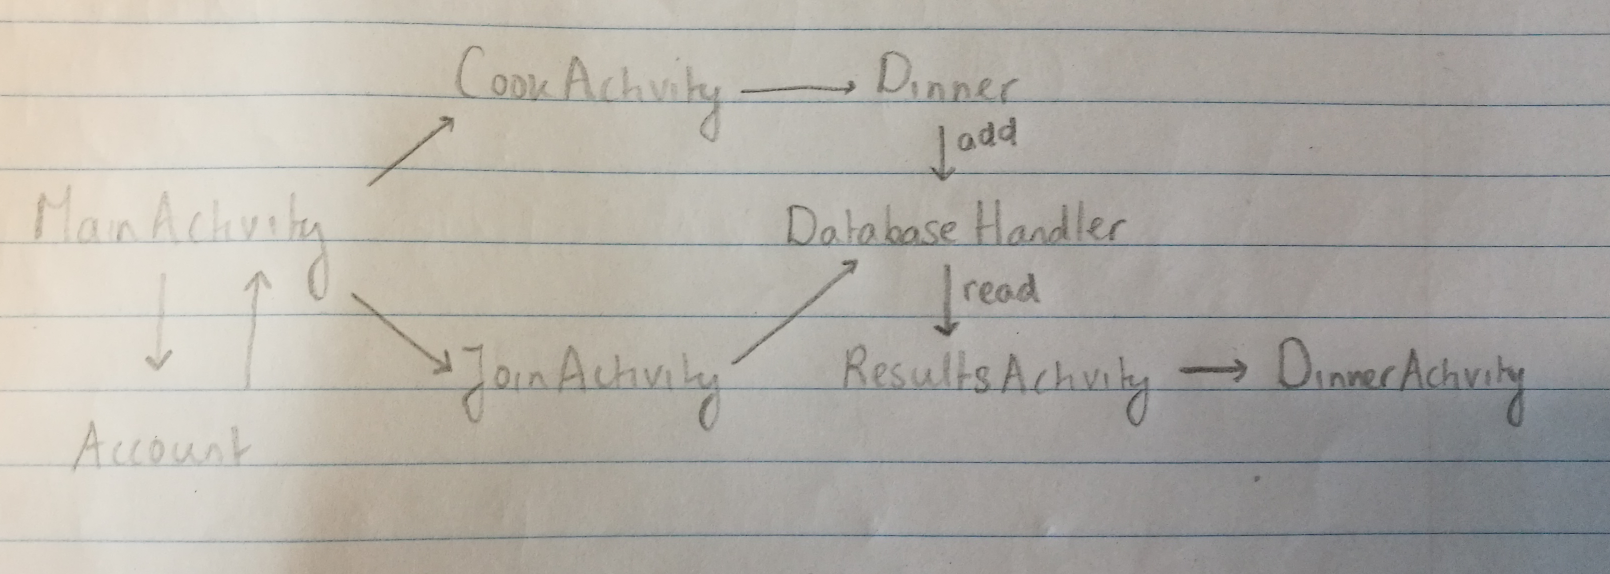 CookActivity Dinner
add
MainActivity Database Handler
read
JoinActivity ResultsActivity DinnerActivity
Account